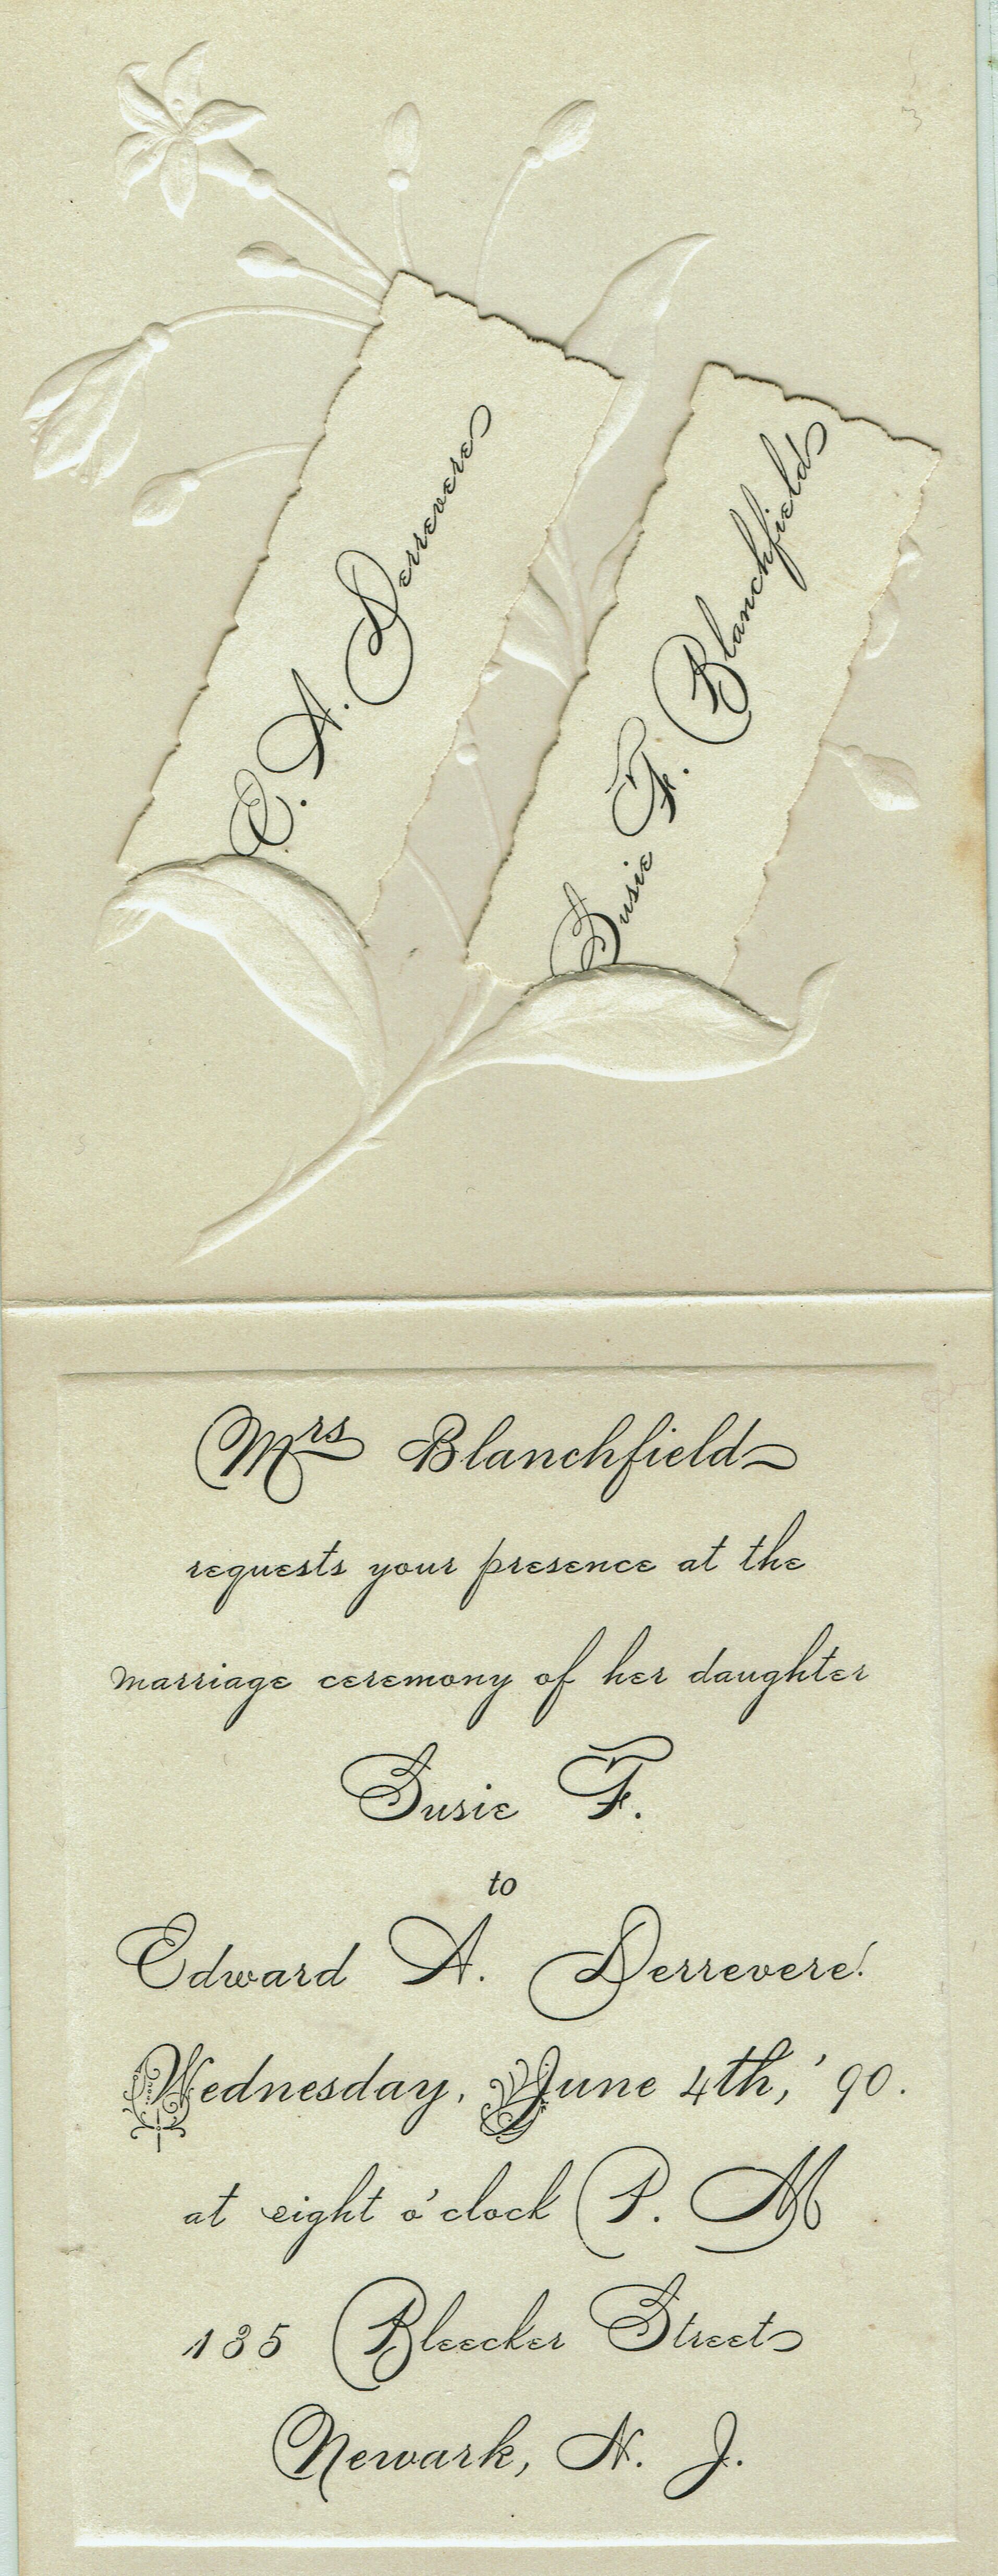 E. A. Derrevere
Susie F. Blanchfield
Mrs Blanchfield
requests your presence at the
marriage ceremony of her daughter
Susie F.
to
Edward A. Derrevere.
Wednesday, June 4th, '90.
at eight o'clock P. M
135 Bleecker Street
Newark, N. J.